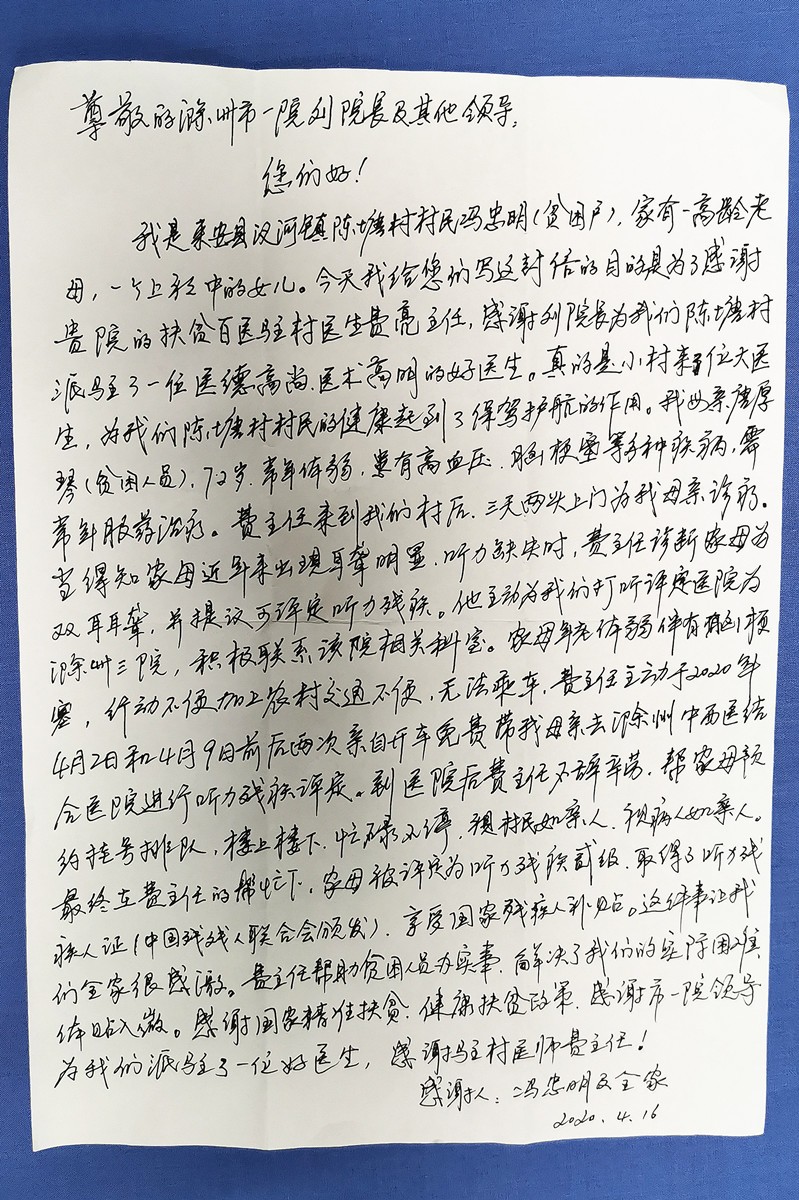 尊敬的滁州市一院刘院长及其他领导:
您们好!
我是来安县汊河镇陈塘村村民冯忠明(贫困户),家有一高龄老
母,一个上初中的女儿。今天我给您们写这封信的目的是为了感谢
贵院的扶贫百医驻村医生费亮主任,感谢刘院长为我们陈塘村
派驻了一位医德高尚.医术高明的好医生。真的是小村来了位大医
生,为我们陈塘村村民的健康起到了保驾护航的作用。我母亲唐厚
琴(贫困人员),72岁.常年体弱,患有高血压.脑梗塞等多种疾病,需
常年服药治疗。费主任来到我们村后.三天两头上门为我母亲诊疗。
当得知家母近年来出现耳聋明显.听力缺失时,费主任诊断家母为
双耳耳聋,并提议可评定听力残疾。他主动为我们打听评定医院为
滁州三院,积极联系该院相关科室。家母年老体弱伴有脑梗
塞,行动不便加上农村交通不便,无法乘车,费主任主动于2020年
4月2日和4月9日前后两次亲自开车免费带我母亲去滁州中西医结
合医院进行听力残疾评定。到医院后费主任不辞辛劳.帮家母预
约挂号排队,楼上楼下.忙碌不停.视村民如亲人.视病人如亲人。
最终在费主任的帮忙下,家母被评定为听力残疾贰级.取得了听力残
疾人证(中国残疾人联合会颁发).享受国家残疾人补贴。这件事让我
们全家很感激。费主任帮助贫困人员办实事.解决了我们的实际困难
体贴入微。感谢国家精准扶贫.健康扶贫政策.感谢市一院领导
为我们派驻了一位好医生,感谢驻村医师费主任!
感谢人:冯忠明及全家
2020.4.16